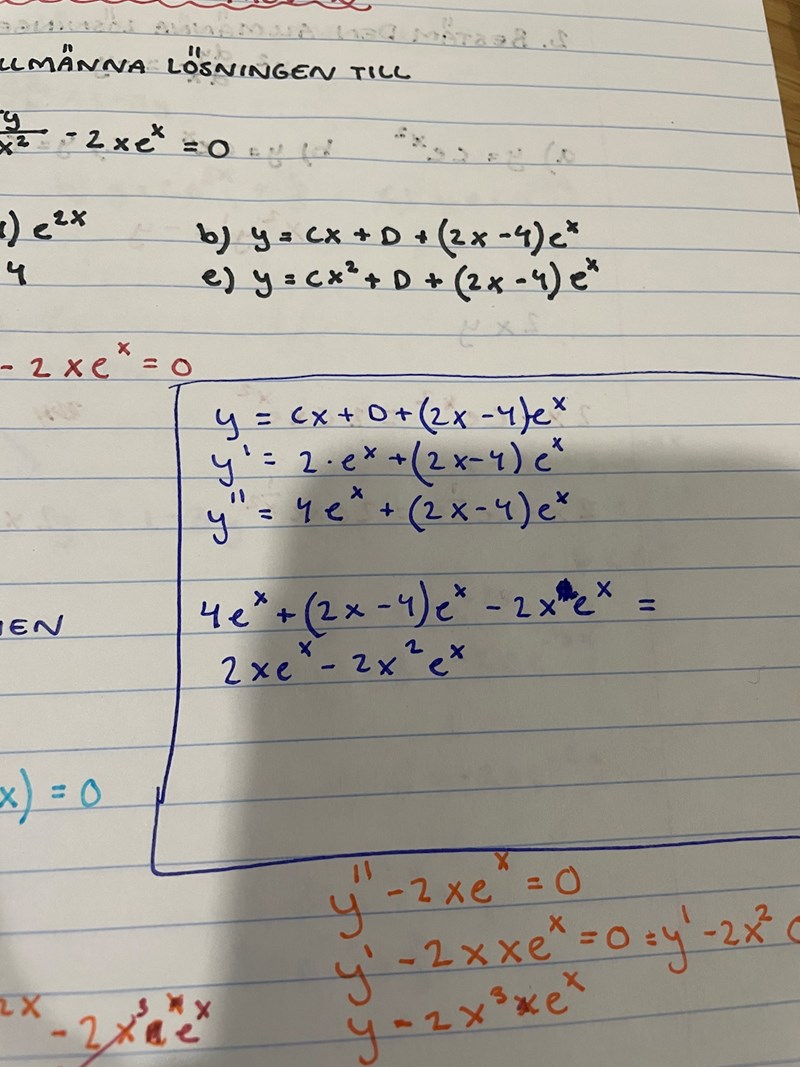 LLMÄNNA LÖSNINGEN TILL
y/x² - 2xe^x = 0
) e^2x b) y = Cx + D + (2x - 4)e^x
4 e) y = Cx² + D + (2x - 4)e^x
- 2xe^x = 0
y = Cx + D + (2x - 4)e^x
y' = 2·e^x + (2x - 4)e^x
y'' = 4e^x + (2x - 4)e^x
4e^x + (2x - 4)e^x - 2x e^x =
EN
2xe^x - 2x²e^x
x) = 0
y'' - 2xe^x = 0
y' - 2xxe^x = 0 = y' - 2x²
2x - 2x³ e^x
y - 2x³xe^x